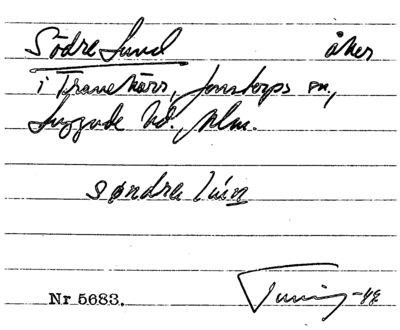 Södra Lund åker
i Tranekärr, Jonstorps sn.,
Luggude hd., Mlm.
søndra lún
Nr 5683. -48